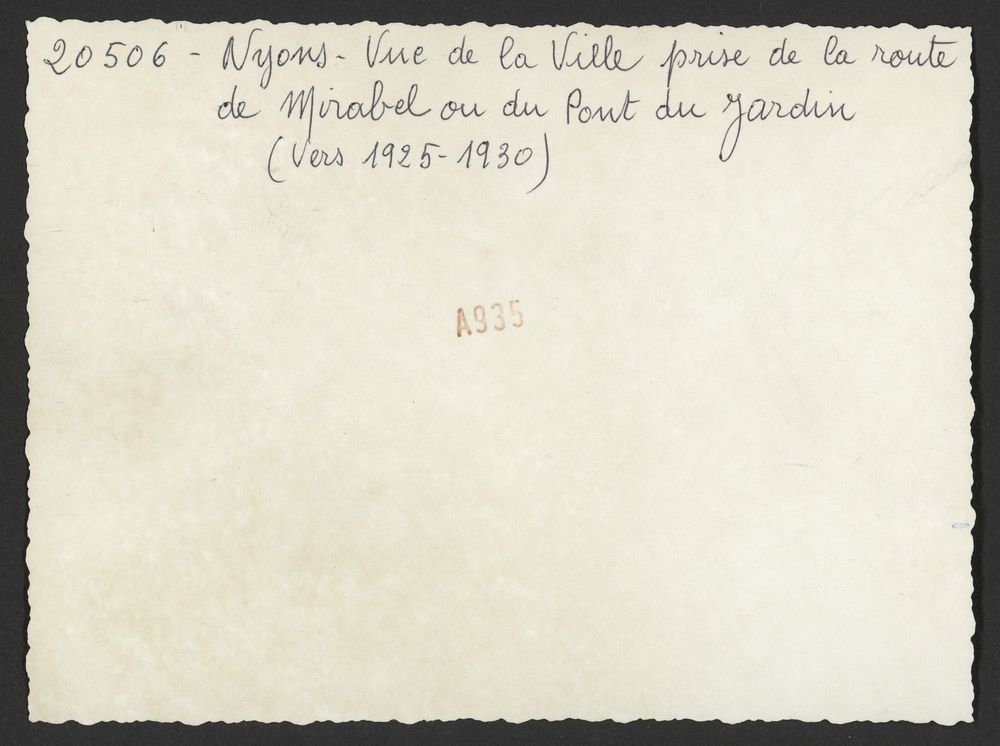 20506 - Nyons - Vue de la Ville prise de la route
de Mirabel ou du Pont du Jardin
(Vers 1925-1930)
A935